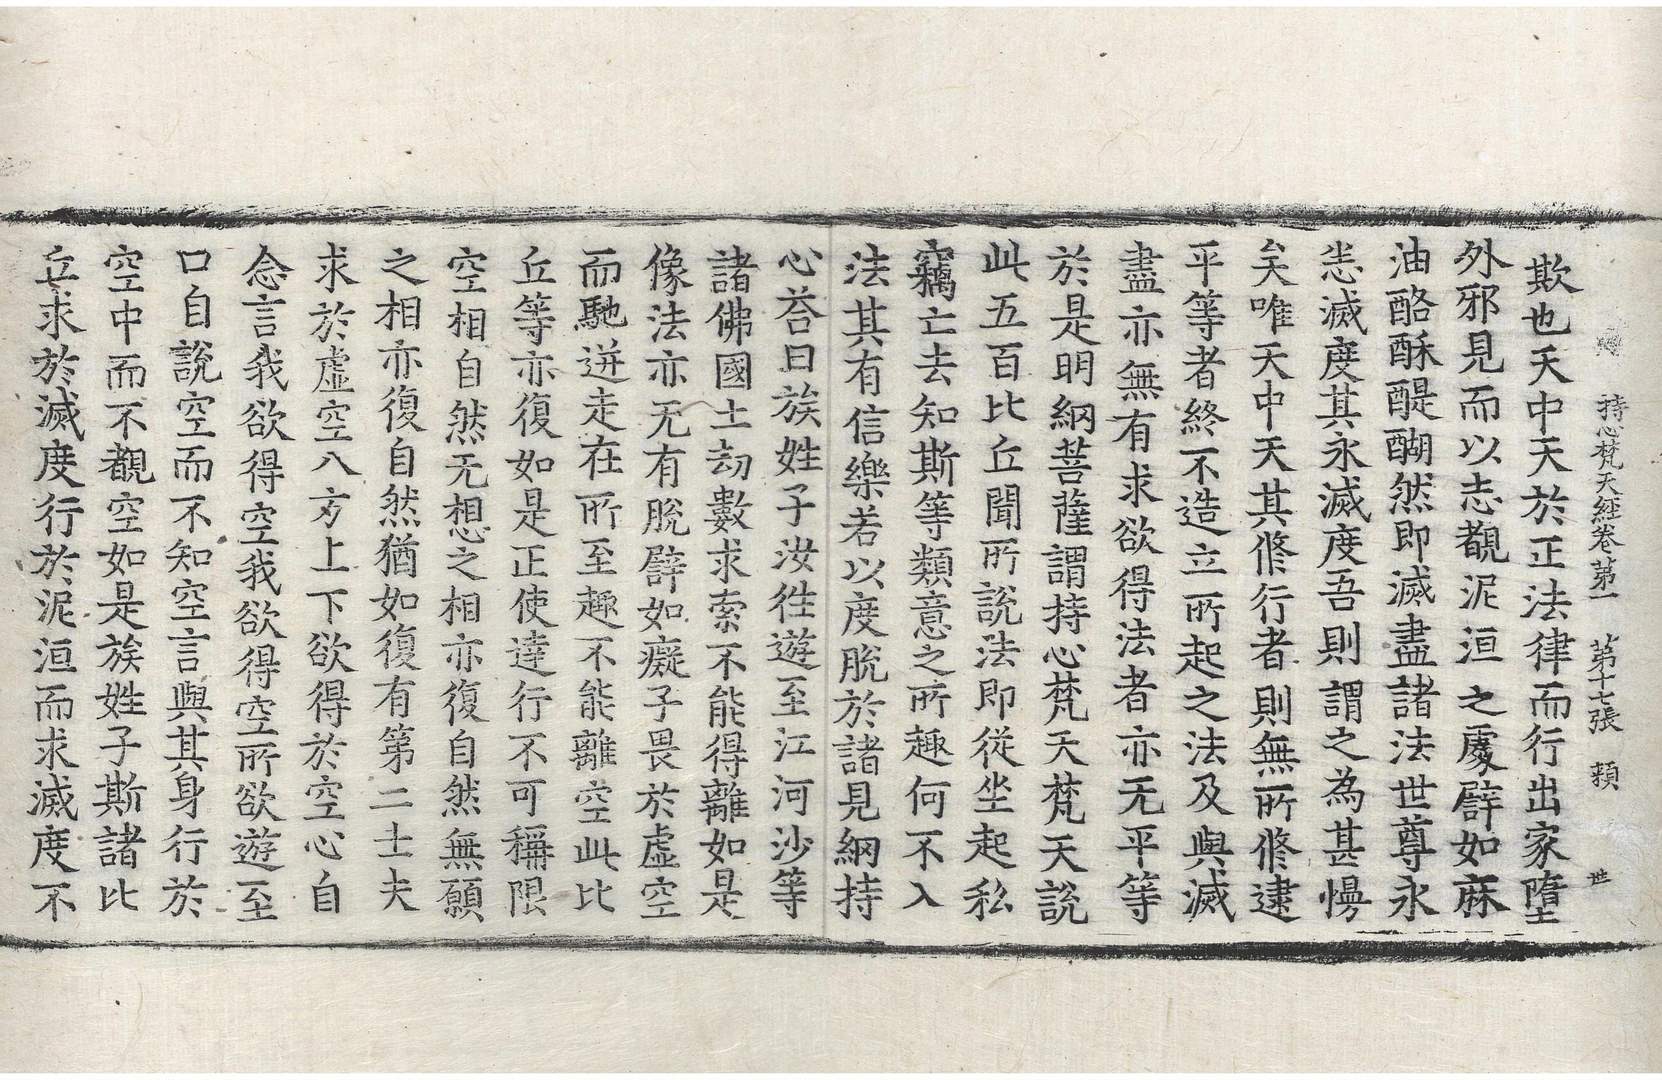 持心梵天經卷第一　第十七張　類
世
欺也天中天於正法律而行出家墮
外邪見而以志覩泥洹之處譬如麻
油酪酥醍醐然即滅盡諸法世尊永
恙滅度其永滅度吾則謂之為甚慢
矣唯天中天其脩行者則無所脩逮
平等者終不造立所起之法及與滅
盡亦無有求欲得法者亦无平等
於是明網菩薩謂持心梵天梵天說
此五百比丘聞所說法即從坐起私
竊亡去知斯等類意之所趣何不入
法其有信樂若以度脫於諸見網持
心荅曰族姓子汝徃遊至江河沙等
諸佛國土劫數求索不能得離如是
像法亦无有脫譬如癡子畏於虛空
而馳迸走在所至趣不能離空此比
丘等亦復如是正使達行不可稱限
空相自然无想之相亦復自然無願
之相亦復自然猶如復有第二士夫
求於虛空八方上下欲得於空心自
念言我欲得空我欲得空所欲遊至
口自說空而不知空言與其身行於
空中而不覩空如是族姓子斯諸比
丘求於滅度行於泥洹而求滅度不